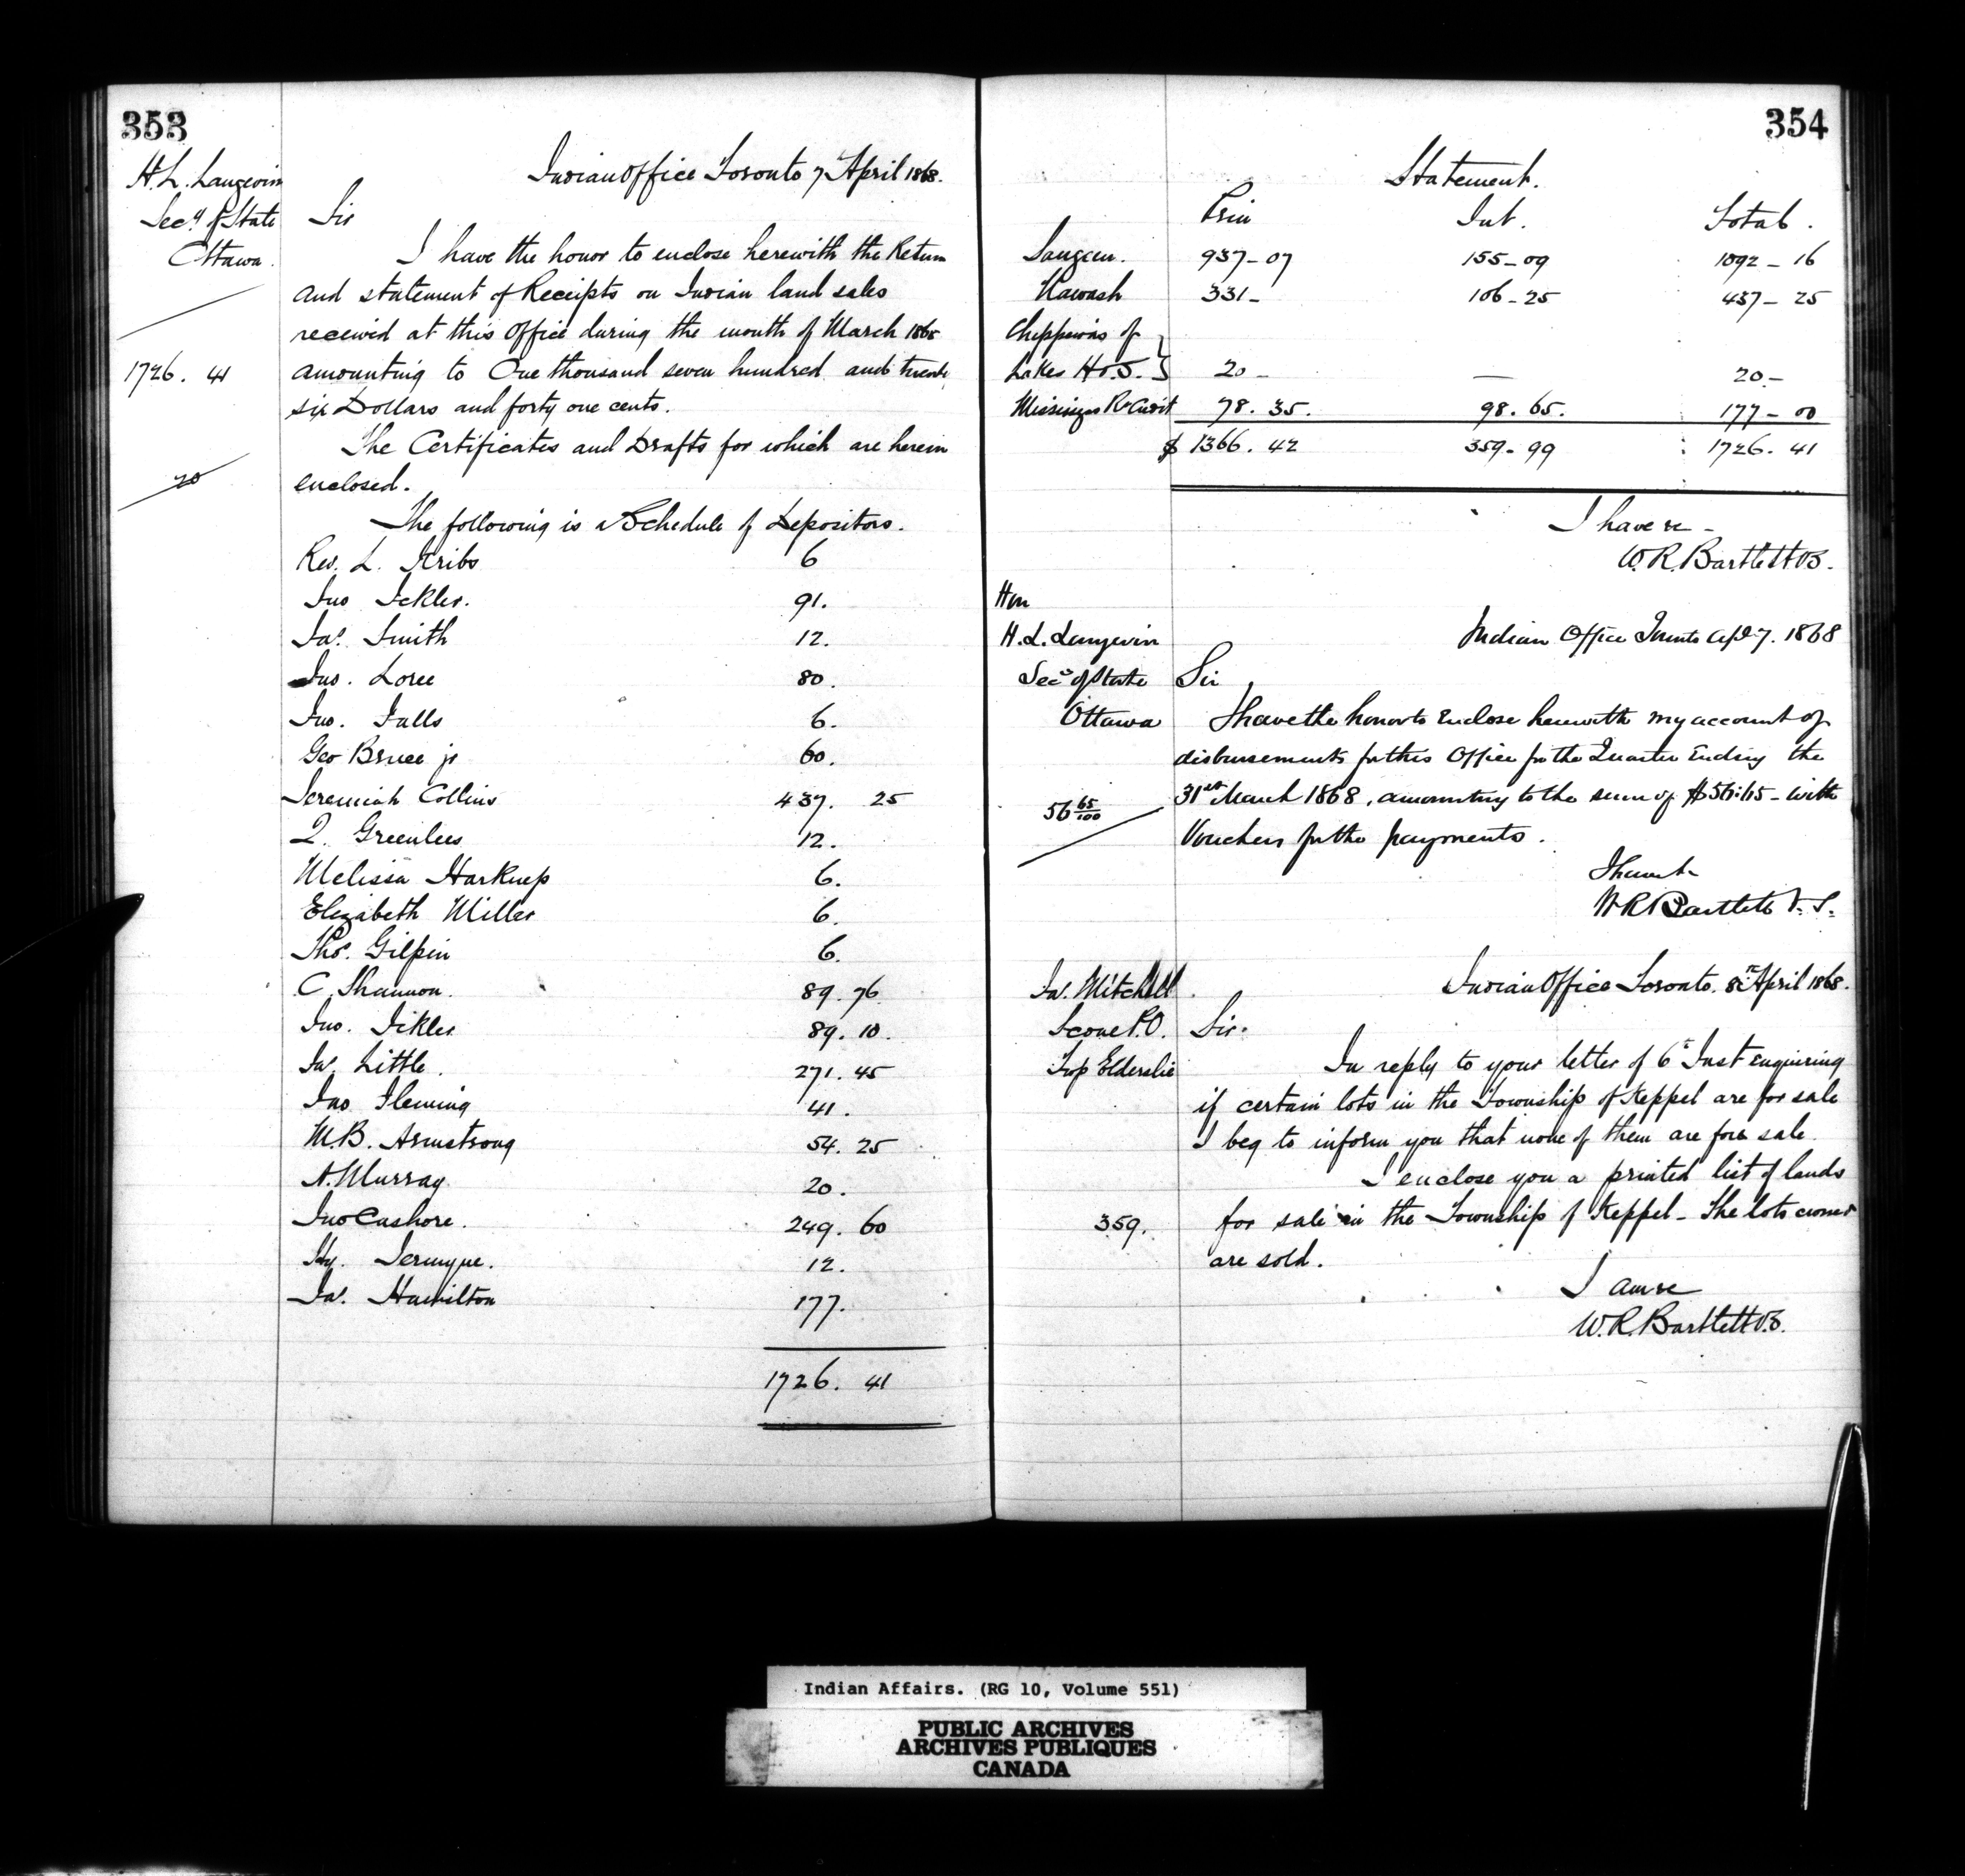 353
H. L. Langevin
Secy of State
Ottawa.
Indian Office Toronto 7 April 1868.
Sir
I have the honor to enclose herewith the Return
and statement of Receipts on Indian land sales
received at this Office during the month of March 1868
1726. 41
amounting to One thousand seven hundred and twenty
six Dollars and forty one cents.
The Certificates and Drafts for which are herein
20
enclosed.
The following is a Schedule of Depositors.
Rev. L. Kribs 6
Jno Ickler. 91.
Jas. Smith 12.
Jno. Loree 80.
Jno. Falls 6.
Geo Bruce jr 60.
Jeremiah Collins 437. 25
J. Greenlees 12.
Melissa Harknep 6.
Elizabeth Miller 6.
Thos. Gilpin 6.
C. Shannon. 89. 76
Jno. Ickler 89. 10.
Jas. Little. 271. 45
Jno Fleming 41.
M.B. Armstrong 54. 25
A. Murray 20.
Jno Cashore. 249. 60
Hy. Jermyne. 12.
Jas. Hamilton 177.
1726. 41
354
Statement.
Prin Int. Total.
Saugeen. 937-07 155-09 1092-16
Kawash 331- 106-25 437-25
Chippewas of
Lakes H & S. } 20- — 20.-
Missisagas R. Credit 78. 35. 98. 65. 177-00
$ 1366. 42 359-99 1726. 41
I have &c -
W. R. Bartlett V.S.
Hon
H. L. Langevin
Secy of State
Ottawa
Indian Office Toronto Apl 7. 1868
Sir
I have the honor to Enclose herewith my account of
disbursements for this Office for the Quarter Ending the
56 65/100
31st March 1868, amounting to the sum of $56:65- with
Vouchers for the payments.
I have &c
W R Bartlett V. S.
Jas. Mitchell
Scone P.O.
Twp Elderslie
Indian Office Toronto. 8th April 1868.
Sir.
In reply to your letter of 6th Inst enquiring
if certain lots in the Township of Keppel are for sale
I beg to inform you that none of them are for sale.
I enclose you a printed list of lands
359.
for sale in the Township of Keppel - The lots
are sold.
I am &c
W. R. Bartlett V.S.
Indian Affairs. (RG 10, Volume 551)
PUBLIC ARCHIVES
ARCHIVES PUBLIQUES
CANADA